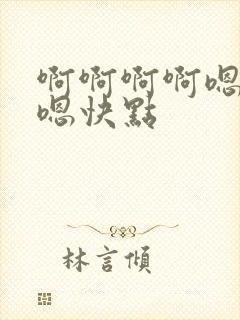 啊啊啊啊嗯
嗯快點
林言傾